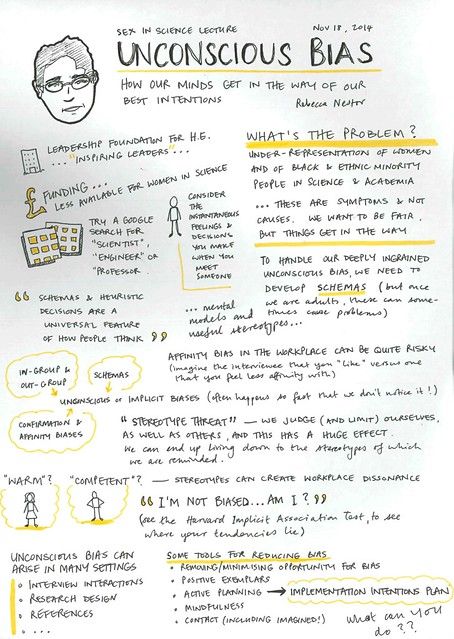 SEX IN SCIENCE LECTURE
NOV 18, 2014
UNCONSCIOUS BIAS
HOW OUR MINDS GET IN THE WAY OF OUR
BEST INTENTIONS
Rebecca Nestor
LEADERSHIP FOUNDATION FOR H.E.
... "INSPIRING LEADERS" ...
£ FUNDING ...
LESS AVAILABLE FOR WOMEN IN SCIENCE
TRY A GOOGLE
SEARCH FOR
"SCIENTIST",
"ENGINEER" OR
"PROFESSOR"
CONSIDER
THE
INSTANTANEOUS
FEELINGS &
DECISIONS
YOU MAKE
WHEN YOU
MEET
SOMEONE
WHAT'S THE PROBLEM?
UNDER-REPRESENTATION OF WOMEN
AND OF BLACK & ETHNIC MINORITY
PEOPLE IN SCIENCE & ACADEMIA
... THESE ARE SYMPTOMS & NOT
CAUSES. WE WANT TO BE FAIR,
BUT THINGS GET IN THE WAY
TO HANDLE OUR DEEPLY INGRAINED
UNCONSCIOUS BIAS, WE NEED TO
DEVELOP SCHEMAS (but once
we are adults, these can some-
times cause problems)
... mental
models and
useful stereotypes...
" SCHEMAS & HEURISTIC
DECISIONS ARE A
UNIVERSAL FEATURE
OF HOW PEOPLE THINK "
AFFINITY BIAS IN THE WORKPLACE CAN BE QUITE RISKY
(imagine the interviewee that you "like" versus one
that you feel less affinity with)
IN-GROUP &
OUT-GROUP
SCHEMAS
UNCONSCIOUS or IMPLICIT BIASES (often happens so fast that we don't notice it!)
CONFIRMATION &
AFFINITY BIASES
"STEREOTYPE THREAT" — WE JUDGE (AND LIMIT) OURSELVES,
AS WELL AS OTHERS, AND THIS HAS A HUGE EFFECT.
We can end up living down to the stereotypes of which
we are reminded.
"WARM"? "COMPETENT"? — STEREOTYPES CAN CREATE WORKPLACE DISSONANCE
" I'M NOT BIASED... AM I? "
(see the Harvard Implicit Association Test, to see
where your tendencies lie)
UNCONSCIOUS BIAS CAN
ARISE IN MANY SETTINGS
• INTERVIEW INTERACTIONS
• RESEARCH DESIGN
• REFERENCES
• ....
SOME TOOLS FOR REDUCING BIAS
• REMOVING/MINIMISING OPPORTUNITY FOR BIAS
• POSITIVE EXEMPLARS
• ACTIVE PLANNING → IMPLEMENTATION INTENTIONS PLAN
• MINDFULNESS
• CONTACT (INCLUDING IMAGINED!)
What can you
do??